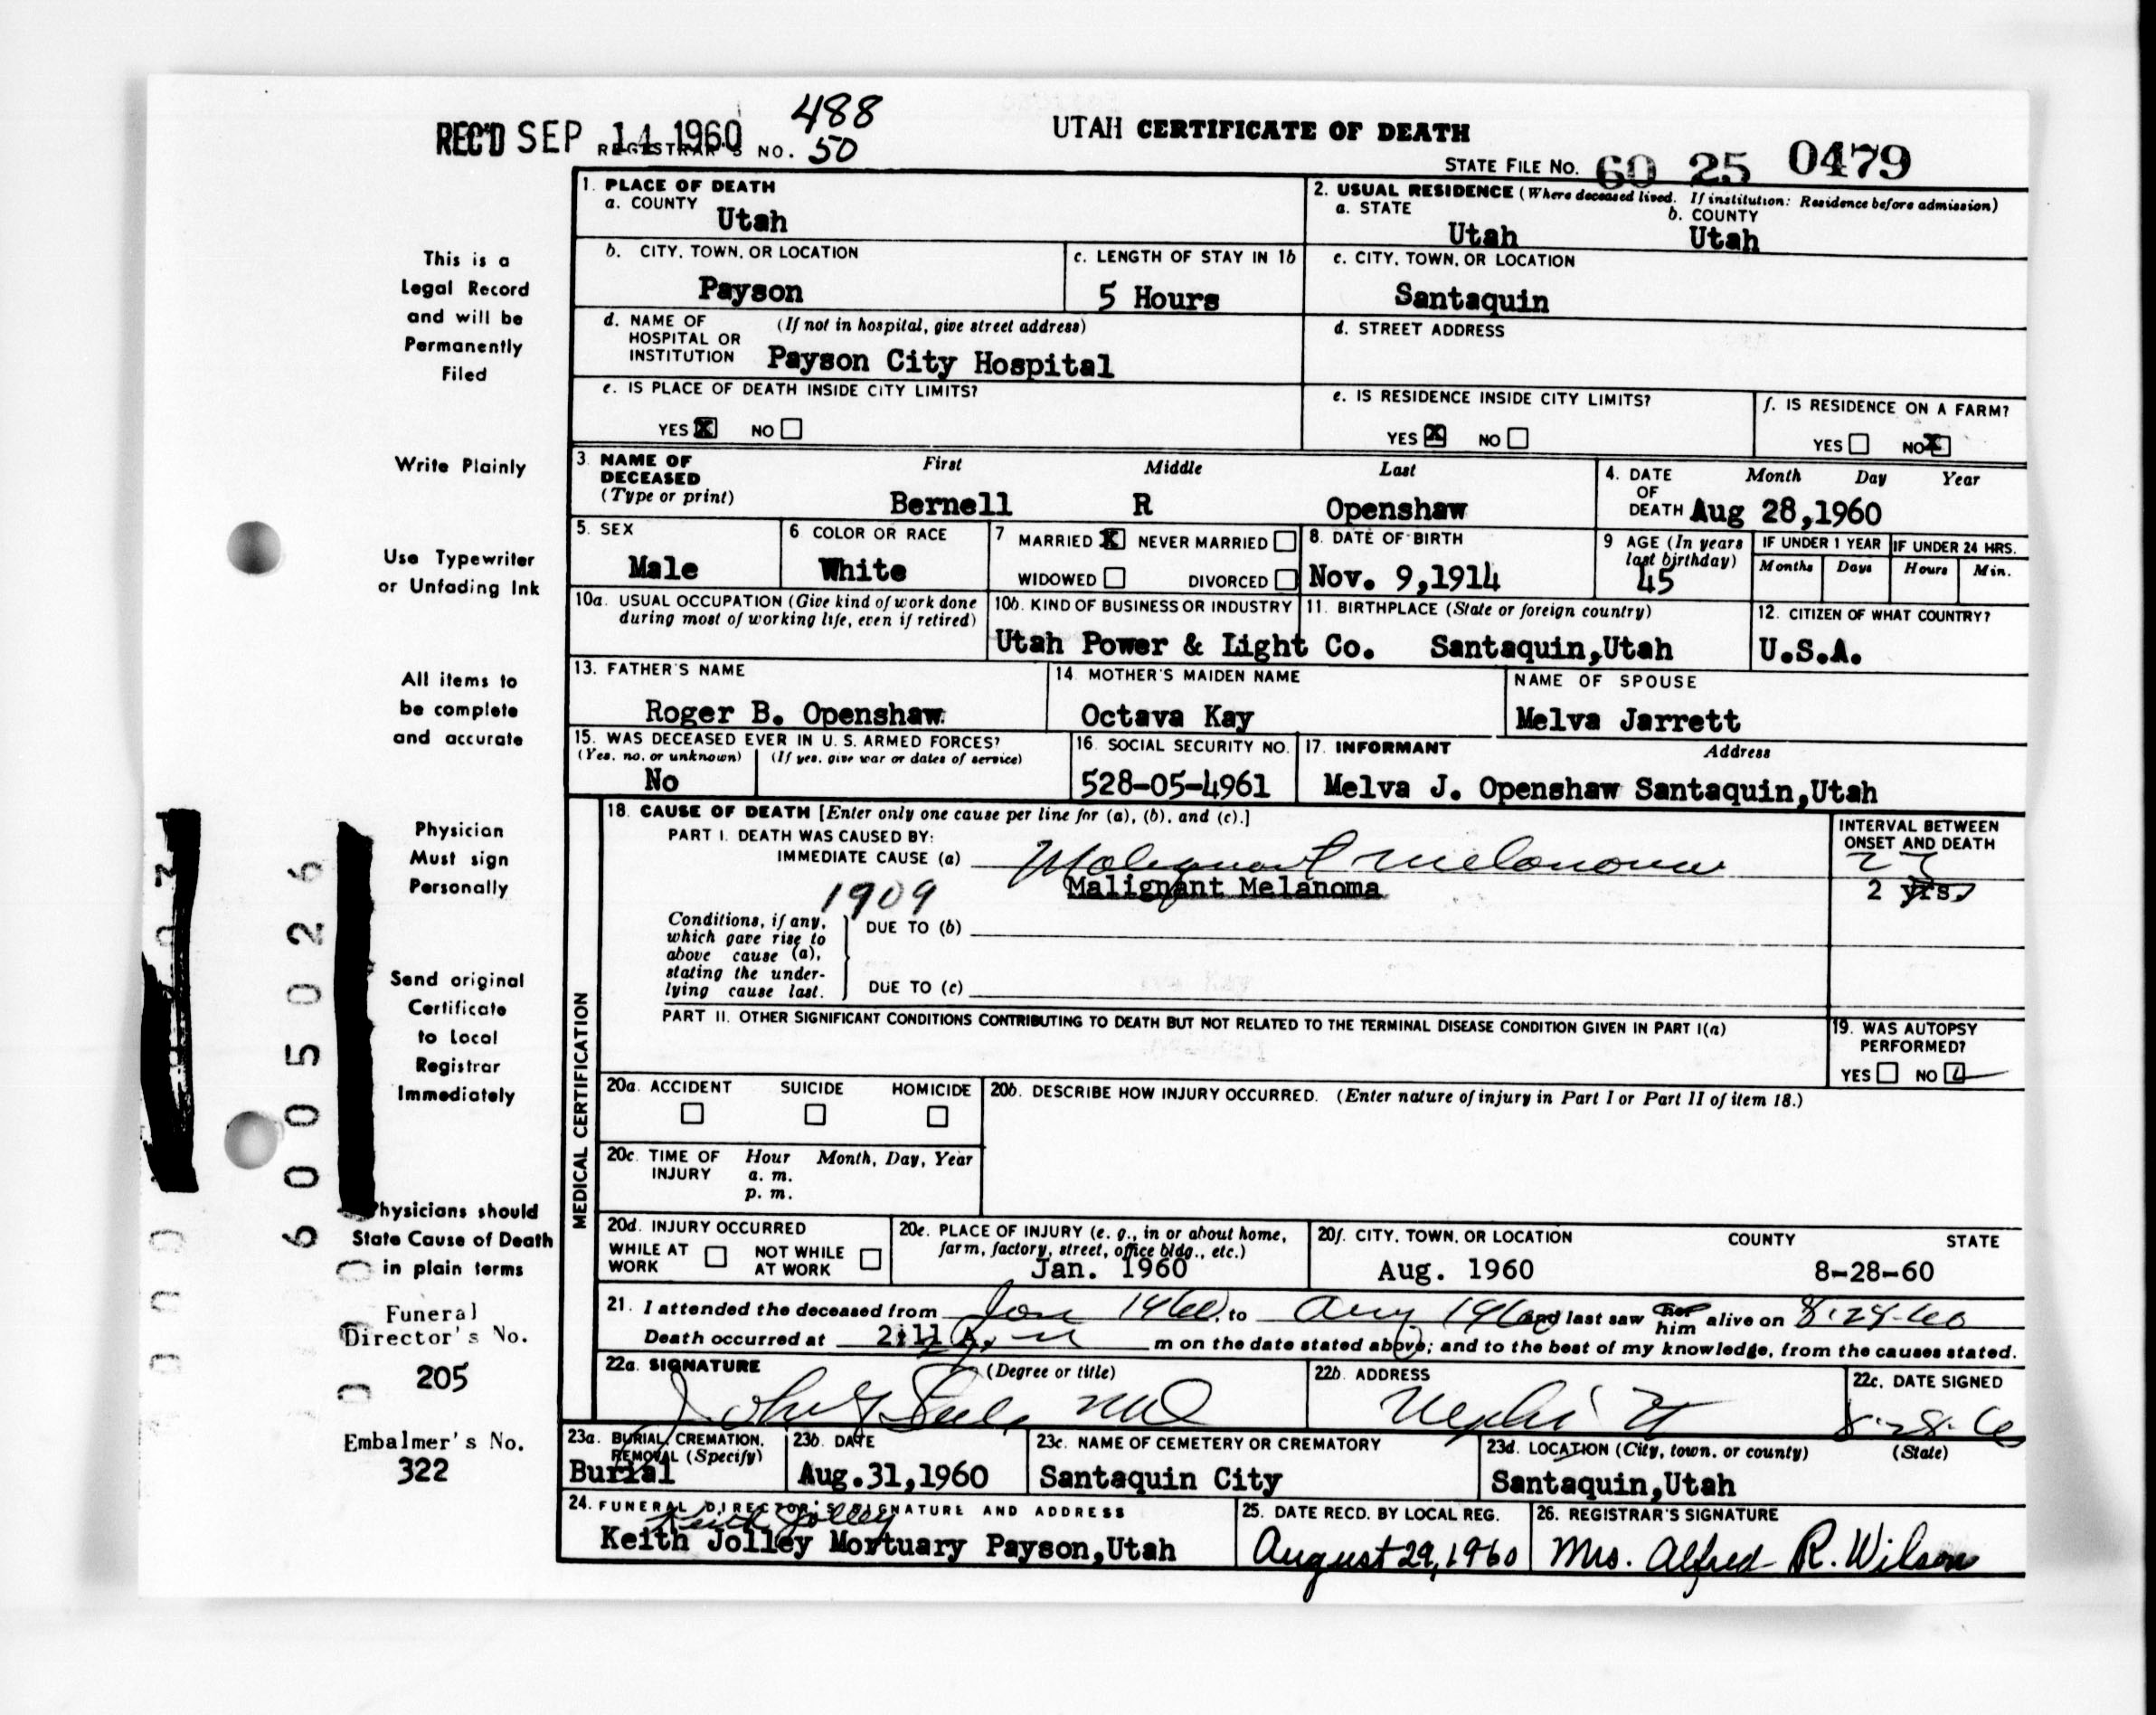 488
REC'D SEP 14 1960 REGISTRAR'S NO. 50
UTAH CERTIFICATE OF DEATH
STATE FILE No. 60 25 0479
This is a
Legal Record
and will be
Permanently
Filed
Write Plainly
Use Typewriter
or Unfading Ink
All items to
be complete
and accurate
Physician
Must sign
Personally
Send original
Certificate
to Local
Registrar
Immediately
Physicians should
State Cause of Death
in plain terms
Funeral
Director's No.
205
Embalmer's No.
322
6005026
1. PLACE OF DEATH
a. COUNTY
Utah
2. USUAL RESIDENCE (Where deceased lived. If institution: Residence before admission)
a. STATE
Utah
b. COUNTY
Utah
b. CITY, TOWN, OR LOCATION
Payson
c. LENGTH OF STAY IN 1b
5 Hours
c. CITY, TOWN, OR LOCATION
Santaquin
d. NAME OF HOSPITAL OR INSTITUTION (If not in hospital, give street address)
Payson City Hospital
d. STREET ADDRESS
e. IS PLACE OF DEATH INSIDE CITY LIMITS?
YES X NO
e. IS RESIDENCE INSIDE CITY LIMITS?
YES X NO
f. IS RESIDENCE ON A FARM?
YES NO X
3. NAME OF DECEASED (Type or print)
First Middle Last
Bernell R Openshaw
4. DATE OF DEATH Month Day Year
Aug 28,1960
5. SEX
Male
6 COLOR OR RACE
White
7 MARRIED X NEVER MARRIED
WIDOWED DIVORCED
8. DATE OF BIRTH
Nov. 9,1914
9 AGE (In years last birthday)
45
IF UNDER 1 YEAR
Months Days
IF UNDER 24 HRS.
Hours Min.
10a. USUAL OCCUPATION (Give kind of work done during most of working life, even if retired)
10b. KIND OF BUSINESS OR INDUSTRY
Utah Power & Light Co.
11. BIRTHPLACE (State or foreign country)
Santaquin,Utah
12. CITIZEN OF WHAT COUNTRY?
U.S.A.
13. FATHER'S NAME
Roger B. Openshaw
14. MOTHER'S MAIDEN NAME
Octava Kay
NAME OF SPOUSE
Melva Jarrett
15. WAS DECEASED EVER IN U. S. ARMED FORCES?
(Yes, no, or unknown) (If yes, give war or dates of service)
No
16. SOCIAL SECURITY NO.
528-05-4961
17. INFORMANT Address
Melva J. Openshaw Santaquin,Utah
MEDICAL CERTIFICATION
18. CAUSE OF DEATH [Enter only one cause per line for (a), (b), and (c).]
PART I. DEATH WAS CAUSED BY:
IMMEDIATE CAUSE (a) Malignant Melanoma
Malignant Melanoma
1909
INTERVAL BETWEEN ONSET AND DEATH
2 yrs.
Conditions, if any, which gave rise to above cause (a), stating the underlying cause last.
DUE TO (b)
DUE TO (c)
PART II. OTHER SIGNIFICANT CONDITIONS CONTRIBUTING TO DEATH BUT NOT RELATED TO THE TERMINAL DISEASE CONDITION GIVEN IN PART I(a)
19. WAS AUTOPSY PERFORMED?
YES NO
20a. ACCIDENT SUICIDE HOMICIDE
20b. DESCRIBE HOW INJURY OCCURRED. (Enter nature of injury in Part I or Part II of item 18.)
20c. TIME OF INJURY Hour Month, Day, Year
a. m.
p. m.
20d. INJURY OCCURRED
WHILE AT WORK NOT WHILE AT WORK
20e. PLACE OF INJURY (e. g., in or about home, farm, factory, street, office bldg., etc.)
Jan. 1960
20f. CITY, TOWN, OR LOCATION COUNTY STATE
Aug. 1960 8-28-60
21. I attended the deceased from Jan 1960, to Aug 1960 and last saw her him alive on 8-28-60
Death occurred at 2:11 A. m m on the date stated above; and to the best of my knowledge, from the causes stated.
22a. SIGNATURE (Degree or title)
John MD
22b. ADDRESS
Nephi Ut
22c. DATE SIGNED
8-28-6
23a. BURIAL, CREMATION, REMOVAL (Specify)
Burial
23b. DATE
Aug.31,1960
23c. NAME OF CEMETERY OR CREMATORY
Santaquin City
23d. LOCATION (City, town, or county) (State)
Santaquin,Utah
24. FUNERAL DIRECTOR'S SIGNATURE AND ADDRESS
Keith Jolley
Keith Jolley Mortuary Payson,Utah
25. DATE RECD. BY LOCAL REG.
August 29, 1960
26. REGISTRAR'S SIGNATURE
Mrs. Alfred R. Wilson